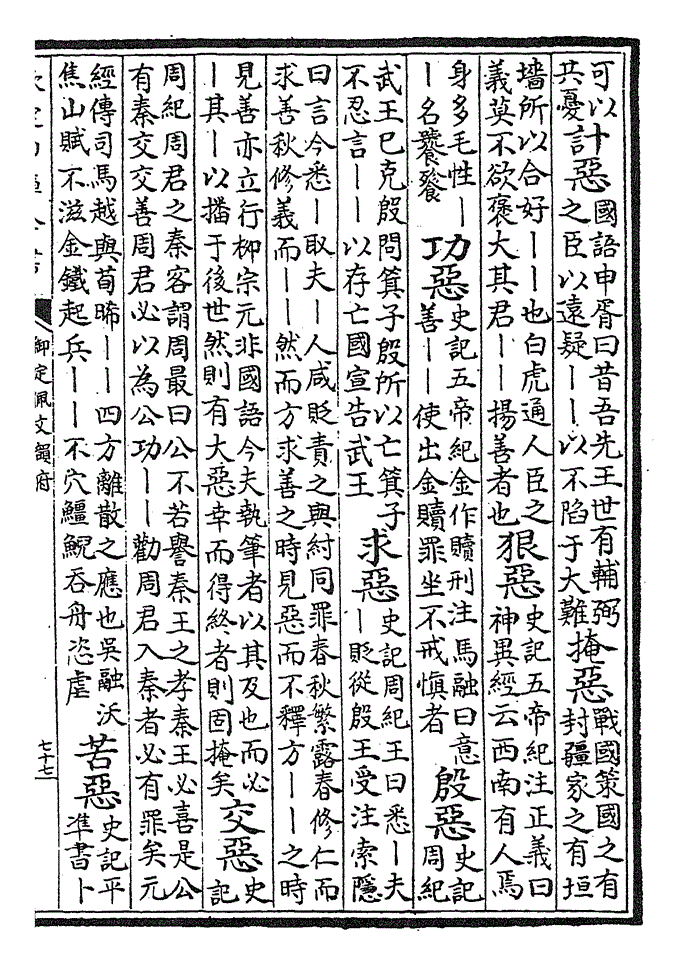 可以共憂計惡國語申胥曰昔吾先王世有輔弼之臣以遠疑丨丨以不陷于大難掩惡戰國策國之有封疆家之有垣
墻所以合好丨丨也白虎通人臣之義莫不欲褒大其君丨丨揚善者也狠惡史記五帝紀注正義曰神異經云西南有人焉
身多毛性丨丨名饕餮功惡史記五帝紀金作贖刑注馬融曰意善丨丨使出金贖罪坐不戒慎者殷惡史記周紀
武王已克殷問箕子殷所以亡箕子不忍言丨丨以存亡國宣告武王求惡史記周紀王曰悉丨夫丨貶從殷王受注索隱
曰言今悉丨取夫丨人咸貶責之與紂同罪春秋繁露春修仁而求善秋修義而丨丨然而方求善之時見惡而不釋方丨丨之時
見善亦立行柳宗元非國語今夫執筆者以其及也而必丨其丨以播于後世然則有大惡幸而得終者則固掩矣交惡史記
周紀周君之秦客謂周最曰公不若譽秦王之孝秦王必喜是公有秦交交善周君必以為公功丨丨勸周君入秦者必有罪矣元
經傳司馬越與荀晞丨丨四方離散之應也吳融沃焦山賦不滋金鐵起兵丨丨不穴鱷鯢吞舟恣虐苦惡史記平凖書卜
御定佩文韻府
七十七